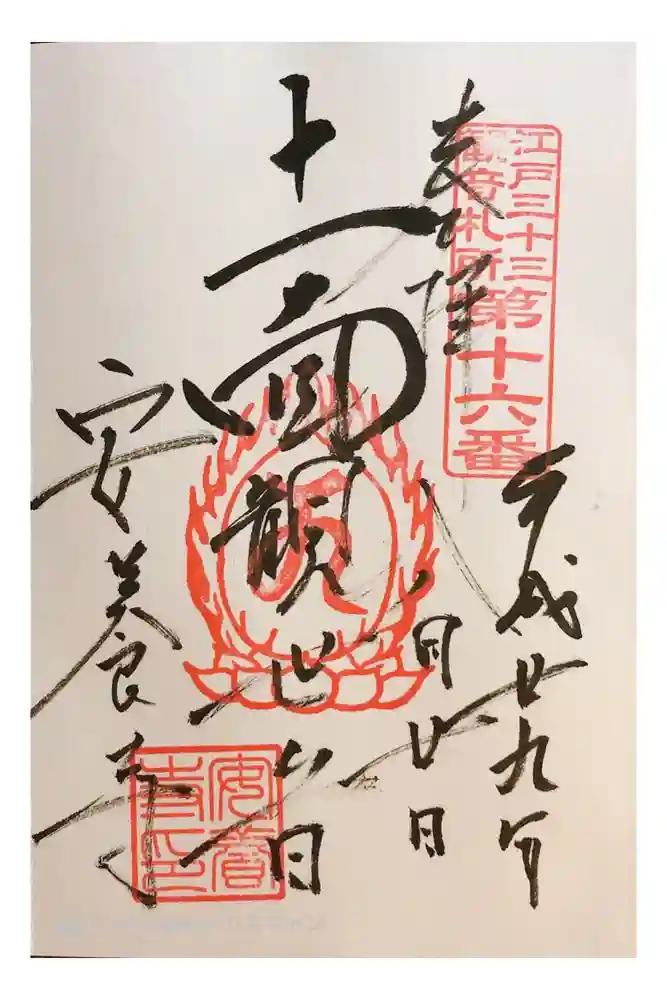 奉拝
江戸三十三
観音札所
第十六番
平成廿九年
八月廿日
十一面観世音
安養寺
安養
寺印